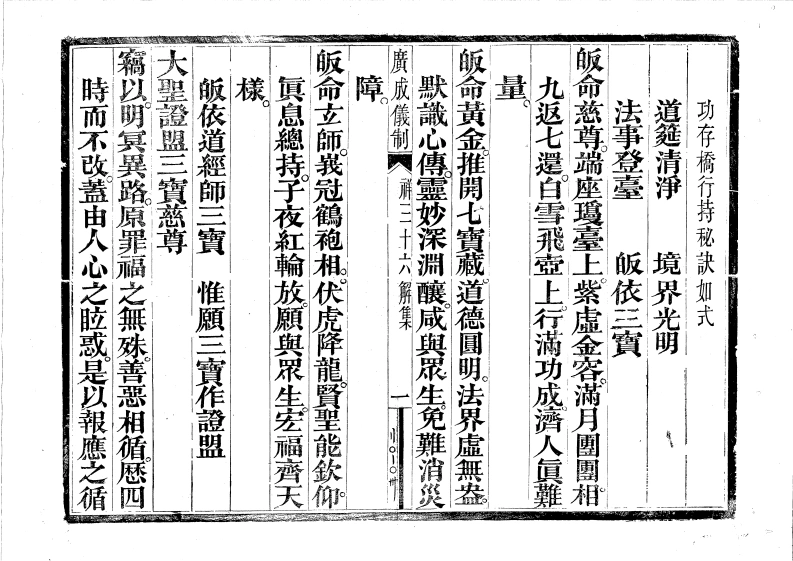 功存橋行持秘訣如式
道筵清淨　境界光明
法事登臺　皈依三寶
皈命慈尊。端座瓊臺上。紫虛金容。滿月團團相。
九返七還。白雪飛壺上。行滿功成。濟人眞難
量。
皈命黃金。推開七寶藏。道德圓明。法界虛無盎。
默識心傳。靈妙深淵釀。咸與眾生。免難消災
障。
廣成儀制　祥三十六解集　一
皈命玄師。莪冠鶴袍相。伏虎降龍。賢聖能欽仰。
眞息總持。子夜紅輪放。願與眾生。宏福齊天
樣。
皈依道經師三寶　惟願三寶作證盟
大聖證盟三寶慈尊
竊以。明冥異路。原罪福之無殊。善惡相循。歷四
時而不改。蓋由人心之眩惑。是以報應之循